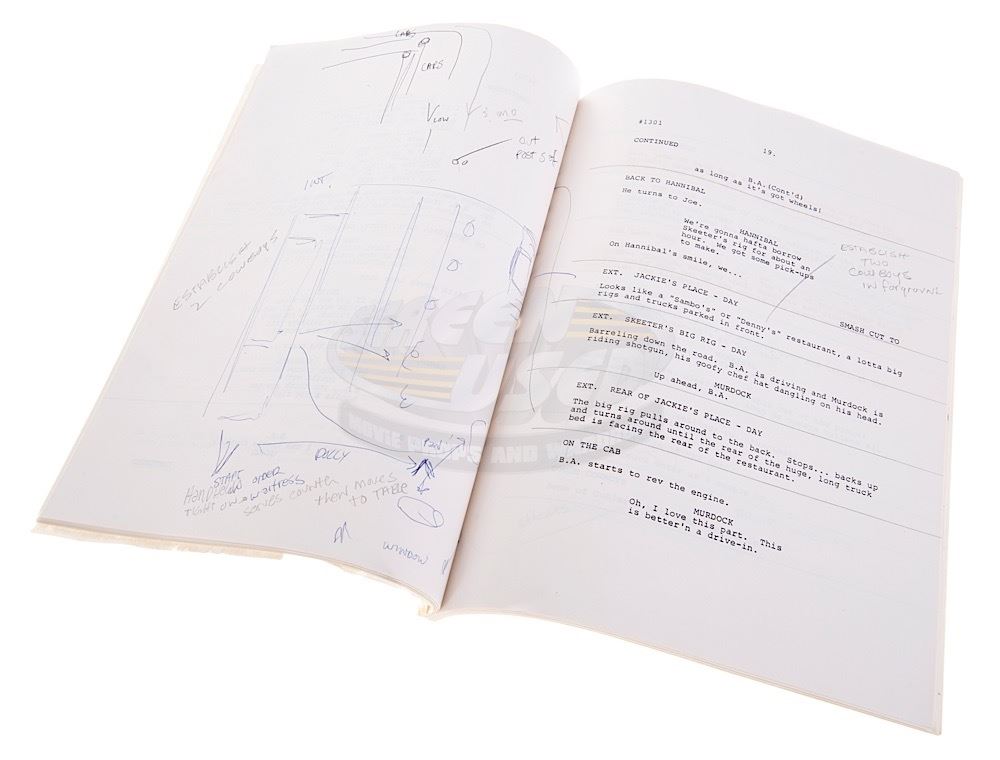 CARS
CARS
LOW
OUT
POST
INT.
ESTABLISH
2 COWBOYS
START
ON ORDER
DOLLY
Handheld
TIGHT ON WAITRESS
series counter
then moves
to TABLE
WINDOW
#1301
CONTINUED
19.
B.A. (Cont'd)
as long as it's got wheels!
BACK TO HANNIBAL
He turns to Joe.
HANNIBAL
We're gonna hafta borrow
Skeeter's rig for about an
hour. We got some pick-ups
to make.
On Hannibal's smile, we...
ESTABLISH
TWO
COWBOYS
IN forground
SMASH CUT TO
EXT. JACKIE'S PLACE - DAY
Looks like a "Sambo's" or "Denny's" restaurant, a lotta big
rigs and trucks parked in front.
EXT. SKEETER'S BIG RIG - DAY
Barreling down the road. B.A. is driving and Murdock is
riding shotgun, his goofy chef hat dangling on his head.
MURDOCK
Up ahead, B.A.
EXT. REAR OF JACKIE'S PLACE - DAY
The big rig pulls around to the back. Stops... backs up
and turns around until the rear of the huge, long truck
bed is facing the rear of the restaurant.
ON THE CAB
B.A. starts to rev the engine.
MURDOCK
Oh, I love this part. This
is better'n a drive-in.